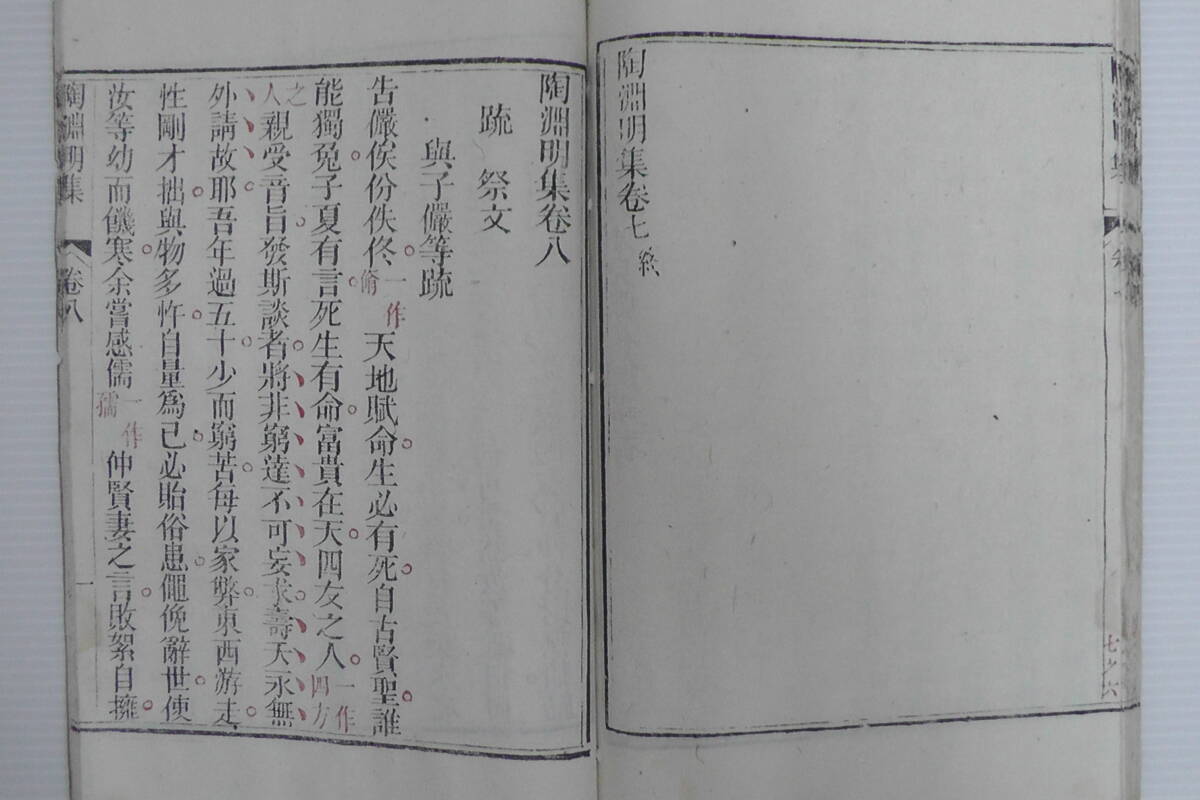 陶淵明集卷七 終
七之六
陶淵明集卷八
疏 祭文
與子儼等疏
告儼俟份佚佟一作脩天地賦命生必有死自古賢聖誰
能獨免子夏有言死生有命富貴在天四友之人一作四方
之人親受音旨發斯談者將非窮達不可妄求壽夭永無
外請故耶吾年過五十少而窮苦每以家弊東西游走
性剛才拙與物多忤自量為己必貽俗患僶俛辭世使
汝等幼而饑寒余嘗感儒一作孺仲賢妻之言敗絮自擁
陶淵明集
卷八
一